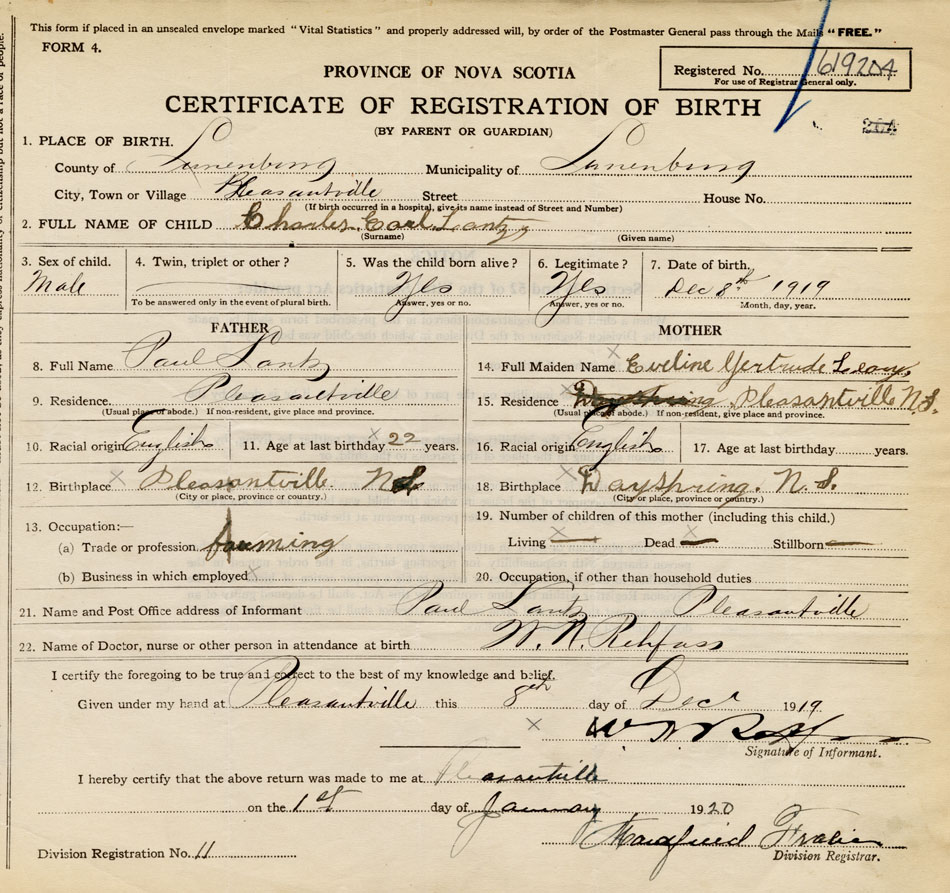 This form if placed in an unsealed envelope marked "Vital Statistics" and properly addressed will, by order of the Postmaster General pass through the Mails "FREE."
FORM 4.
Registered No. 619204
For use of Registrar General only.
PROVINCE OF NOVA SCOTIA
CERTIFICATE OF REGISTRATION OF BIRTH
(BY PARENT OR GUARDIAN)
204
1. PLACE OF BIRTH.
County of Lunenburg Municipality of Lunenburg
City, Town or Village Pleasantville Street House No.
(If birth occurred in a hospital, give its name instead of Street and Number)
2. FULL NAME OF CHILD Charles Earl Lantz
(Surname) (Given name)
3. Sex of child. 4. Twin, triplet or other? 5. Was the child born alive? 6. Legitimate? 7. Date of birth,
Male Yes Yes Dec 8th 1919
To be answered only in the event of plural birth. Answer, yes or no. Answer, yes or no. Month, day, year.
FATHER MOTHER
8. Full Name Paul Lantz 14. Full Maiden Name Eveline Gertrude
9. Residence. Pleasantville 15. Residence Dayspring Pleasantville N.S.
(Usual place of abode.) If non-resident, give place and province. (Usual place of abode.) If non-resident, give place and province.
10. Racial origin English 11. Age at last birthday 22 years. 16. Racial origin English 17. Age at last birthday years.
12. Birthplace Pleasantville. N.S. 18. Birthplace Dayspring. N.S.
(City or place, province or country.) (City or place, province or country.)
13. Occupation:— 19. Number of children of this mother (including this child.)
(a) Trade or profession farming Living Dead Stillborn
(b) Business in which employed 20. Occupation, if other than household duties
21. Name and Post Office address of Informant Paul Lantz Pleasantville
22. Name of Doctor, nurse or other person in attendance at birth W. N. Rehfuss
I certify the foregoing to be true and correct to the best of my knowledge and belief.
Given under my hand at Pleasantville this 8th day of Dec 1919.
Signature of Informant.
I hereby certify that the above return was made to me at Pleasantville
on the 1st day of January 1920
Division Registration No. 11
Division Registrar.